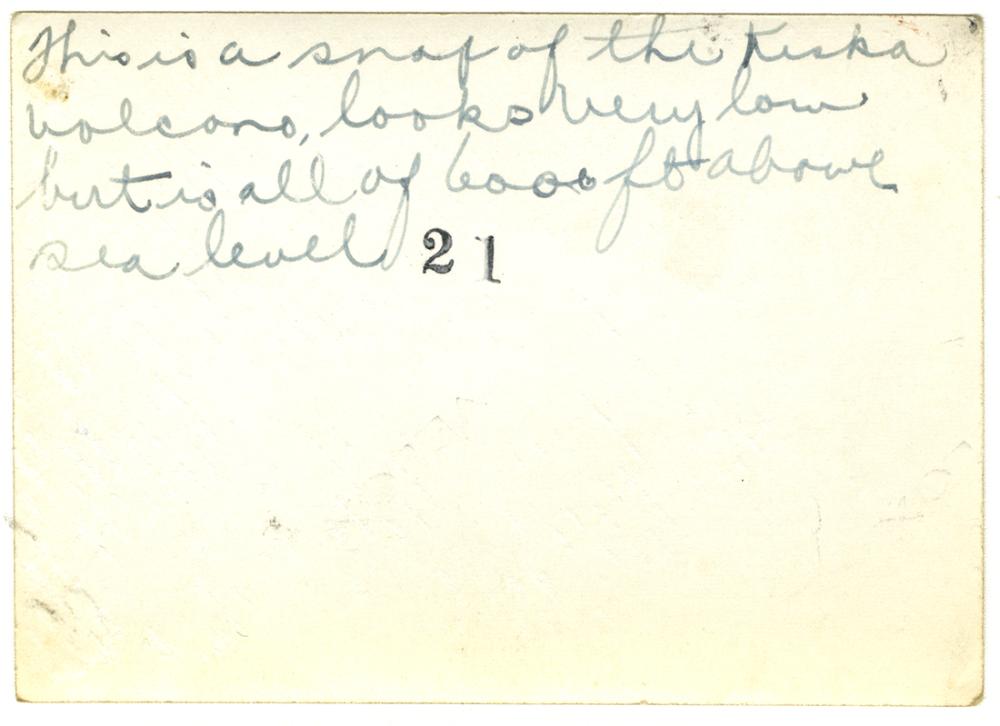 This is a snap of the Kiska
volcano, looks very low
but is all of 6000 ft above
sea level 21